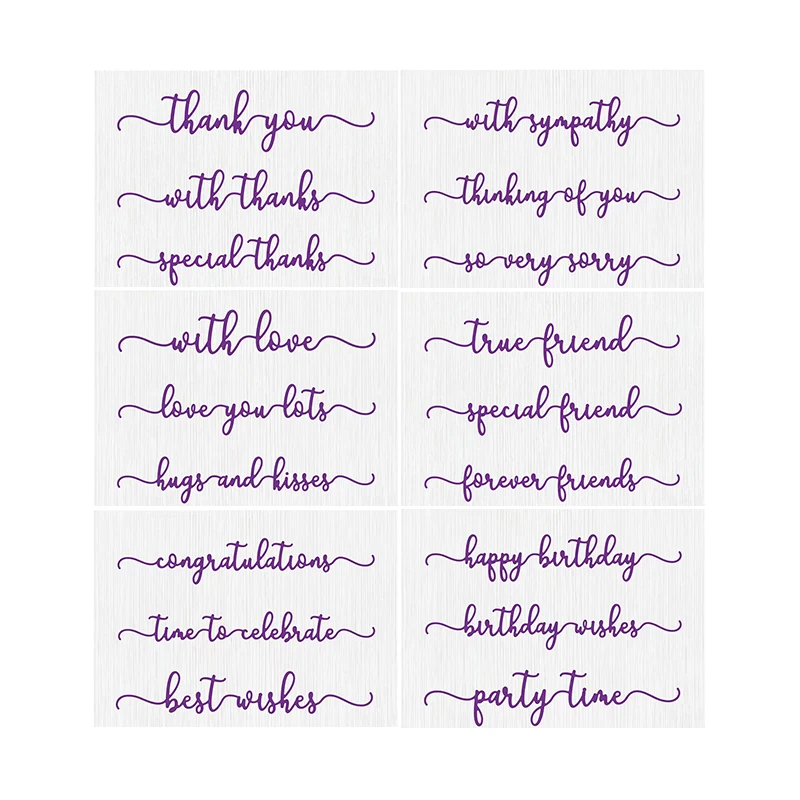 thank you
with thanks
special thanks
with sympathy
thinking of you
so very sorry
with love
love you lots
hugs and kisses
true friend
special friend
forever friends
congratulations
time to celebrate
best wishes
happy birthday
birthday wishes
party time